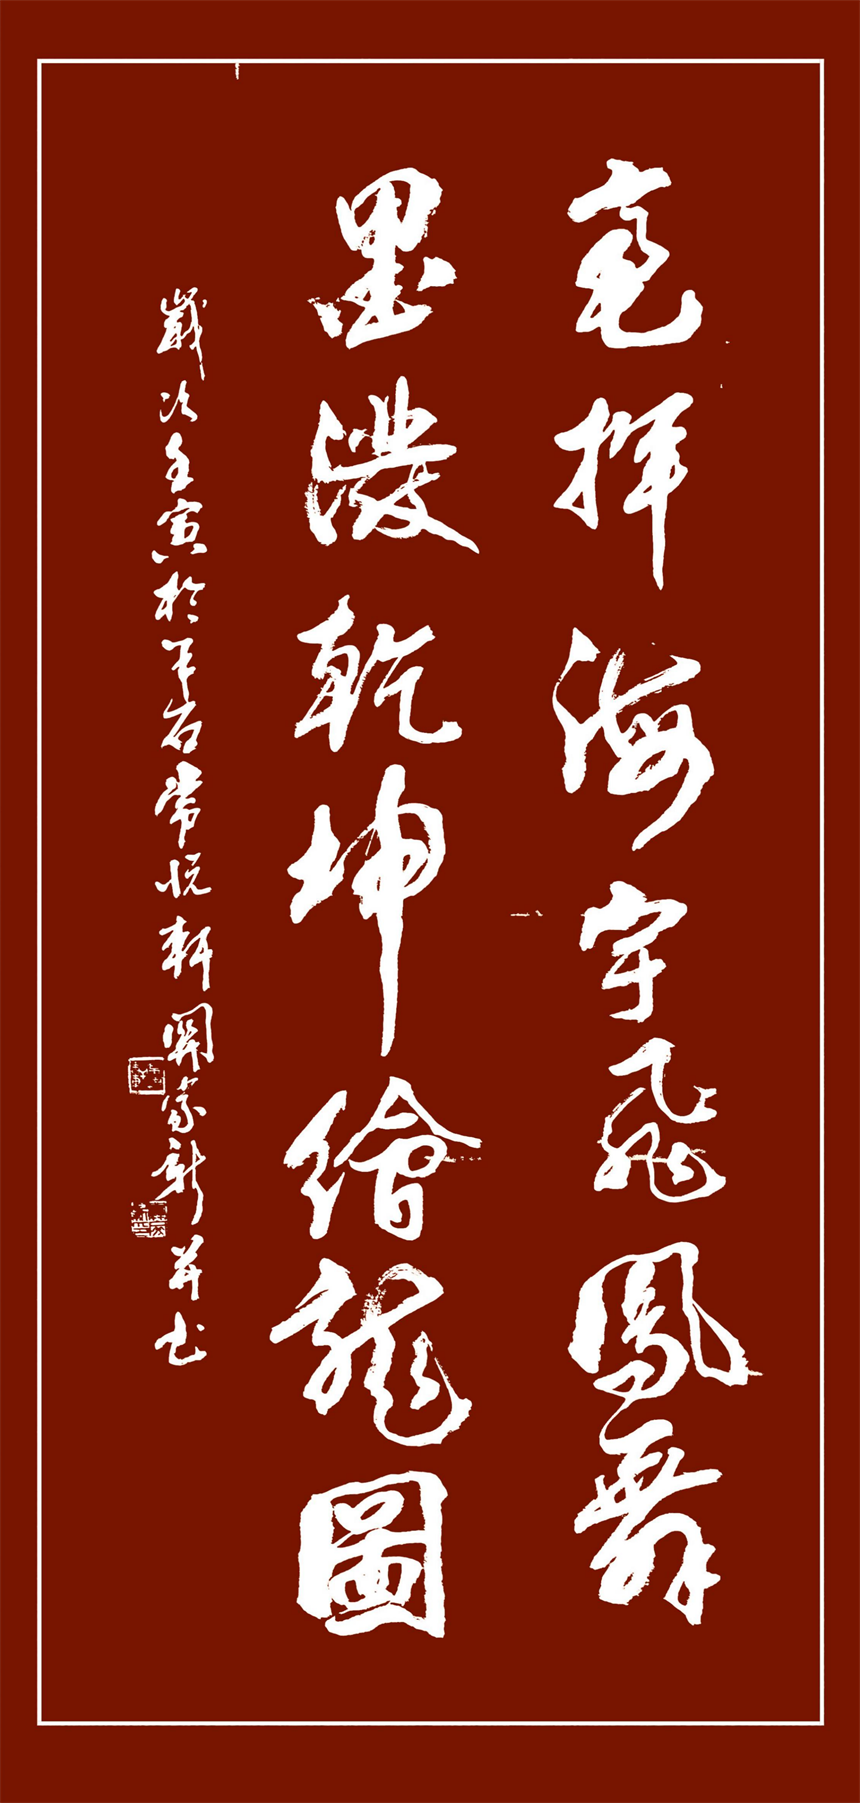 毫揮海宇飛鳳舞
墨潑乾坤繪龍圖
歲次壬寅於半石常悅軒關家新并书